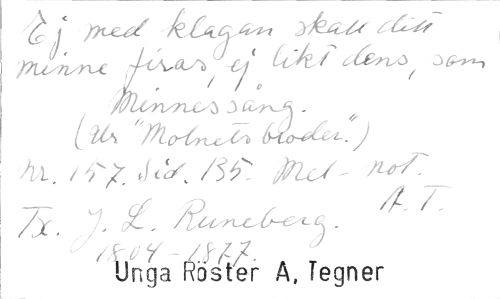 Ej med klagan skall ditt
minne firas, ej likt dens, som
Minnessång.
(Ur "Molnets broder.")
Nr. 157. Sid. 135. Mel - not.
A. T.
Tx. J. L. Runeberg.
1804 - 1877.
Unga Röster A, Tegner